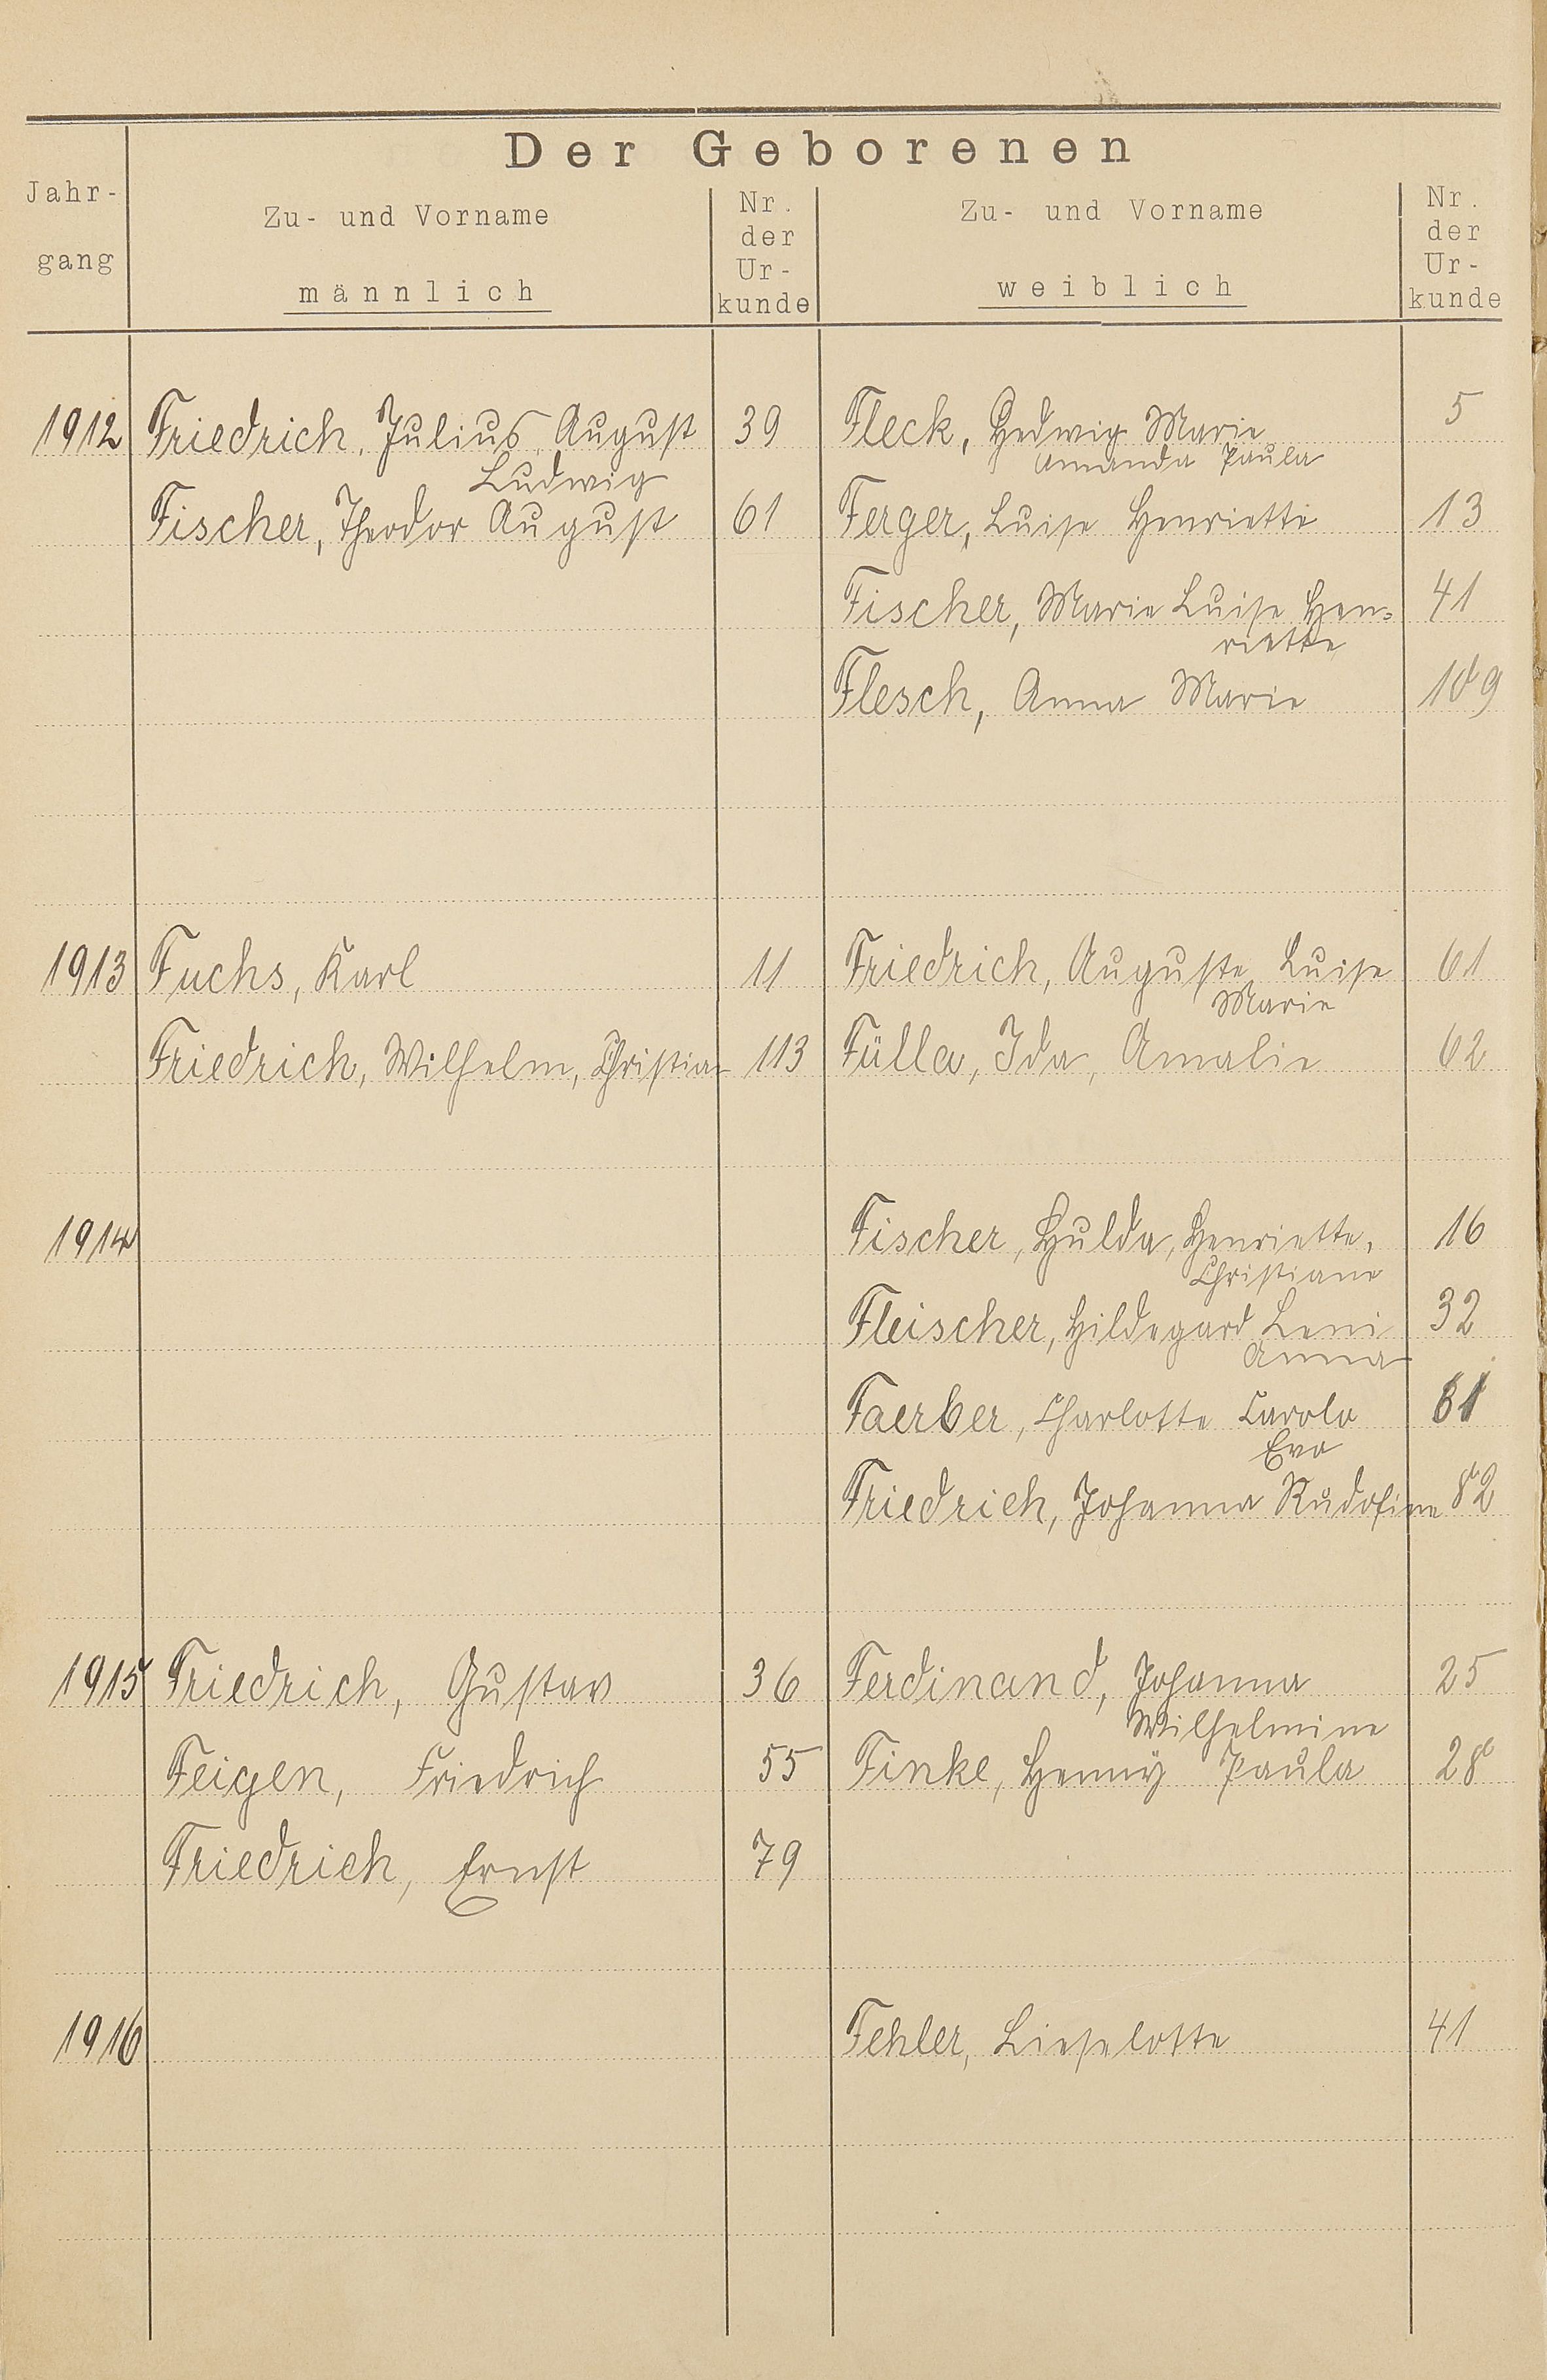 Der Geborenen
Jahr-
gang
Zu- und Vorname
männlich
Nr.
der
Ur-
kunde
Zu- und Vorname
weiblich
Nr.
der
Ur-
kunde
1912 Friedrich, Julius, August 39 Fleck, Hedwig Marie 5
Ludwig Amanda Paula
Fischer, Theodor August 61 Ferger, Luise Henriette 13
Fischer, Marie Luise Hen= 41
riette
Flesch, Anna Marie 109
1913 Fuchs, Karl 11 Friedrich, Auguste Luise 61
Marie
Friedrich, Wilhelm, Christian 113 Fülla, Ida, Amalie 62
1914 Fischer, Hulda, Henriette, 16
Christiane
Fleischer, Hildegard Leni 32
Anna
Faerber, Charlotte Carola 61
Eva
Friedrich, Johanna Rudofine 82
1915 Friedrich, Gustav 36 Ferdinand, Johanna 25
Wilhelmine
Feigen, Friedrich 55 Finke, Henny Paula 28
Friedrich, Ernst 79
1916 Fehler, Lieselotte 41